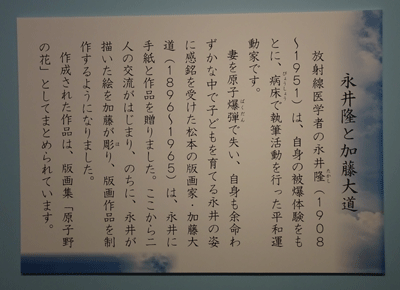 永井隆と加藤大道
放射線医学者の永井隆（1908
〜1951）は、自身の被爆体験をも
とに、病床で執筆活動を行った平和運
動家です。
妻を原子爆弾で失い、自身も余命わ
ずかな中で子どもを育てる永井の姿
に感銘を受けた松本の版画家・加藤大
道（1896〜1965）は、永井に
手紙と作品を贈りました。ここから二
人の交流がはじまり、のちに、永井が
描いた絵を加藤が彫り、版画作品を制
作するようになりました。
作成された作品は、版画集「原子野
の花」としてまとめられています。